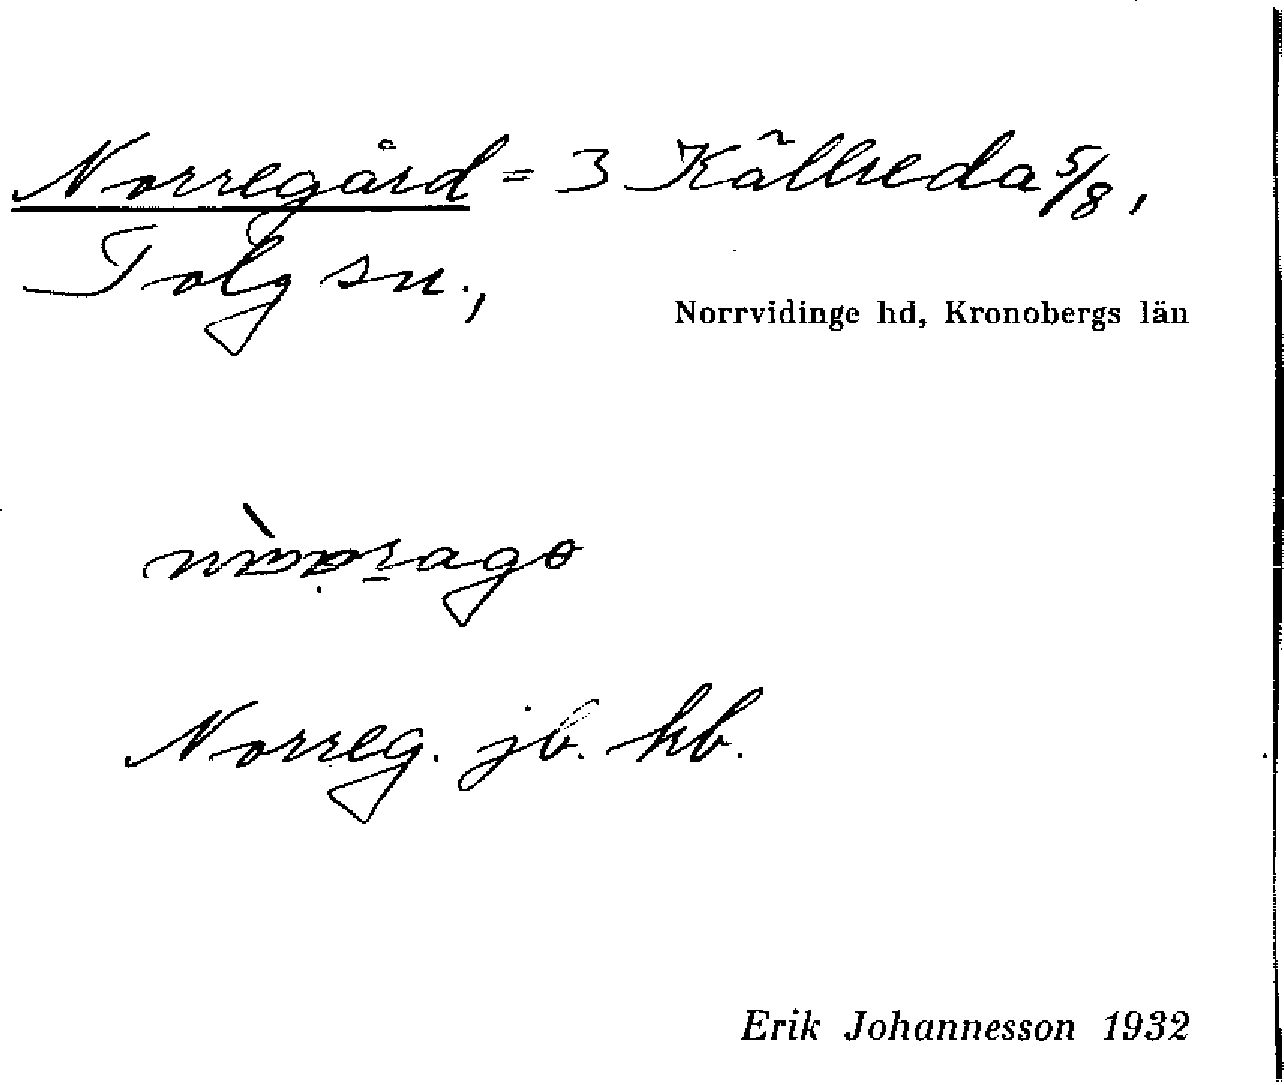 Norregård = 3 Källreda 5/8,
Tolg sn.,
Norrvidinge hd, Kronobergs län
Norreg. jb. hb.
Erik Johannesson 1932